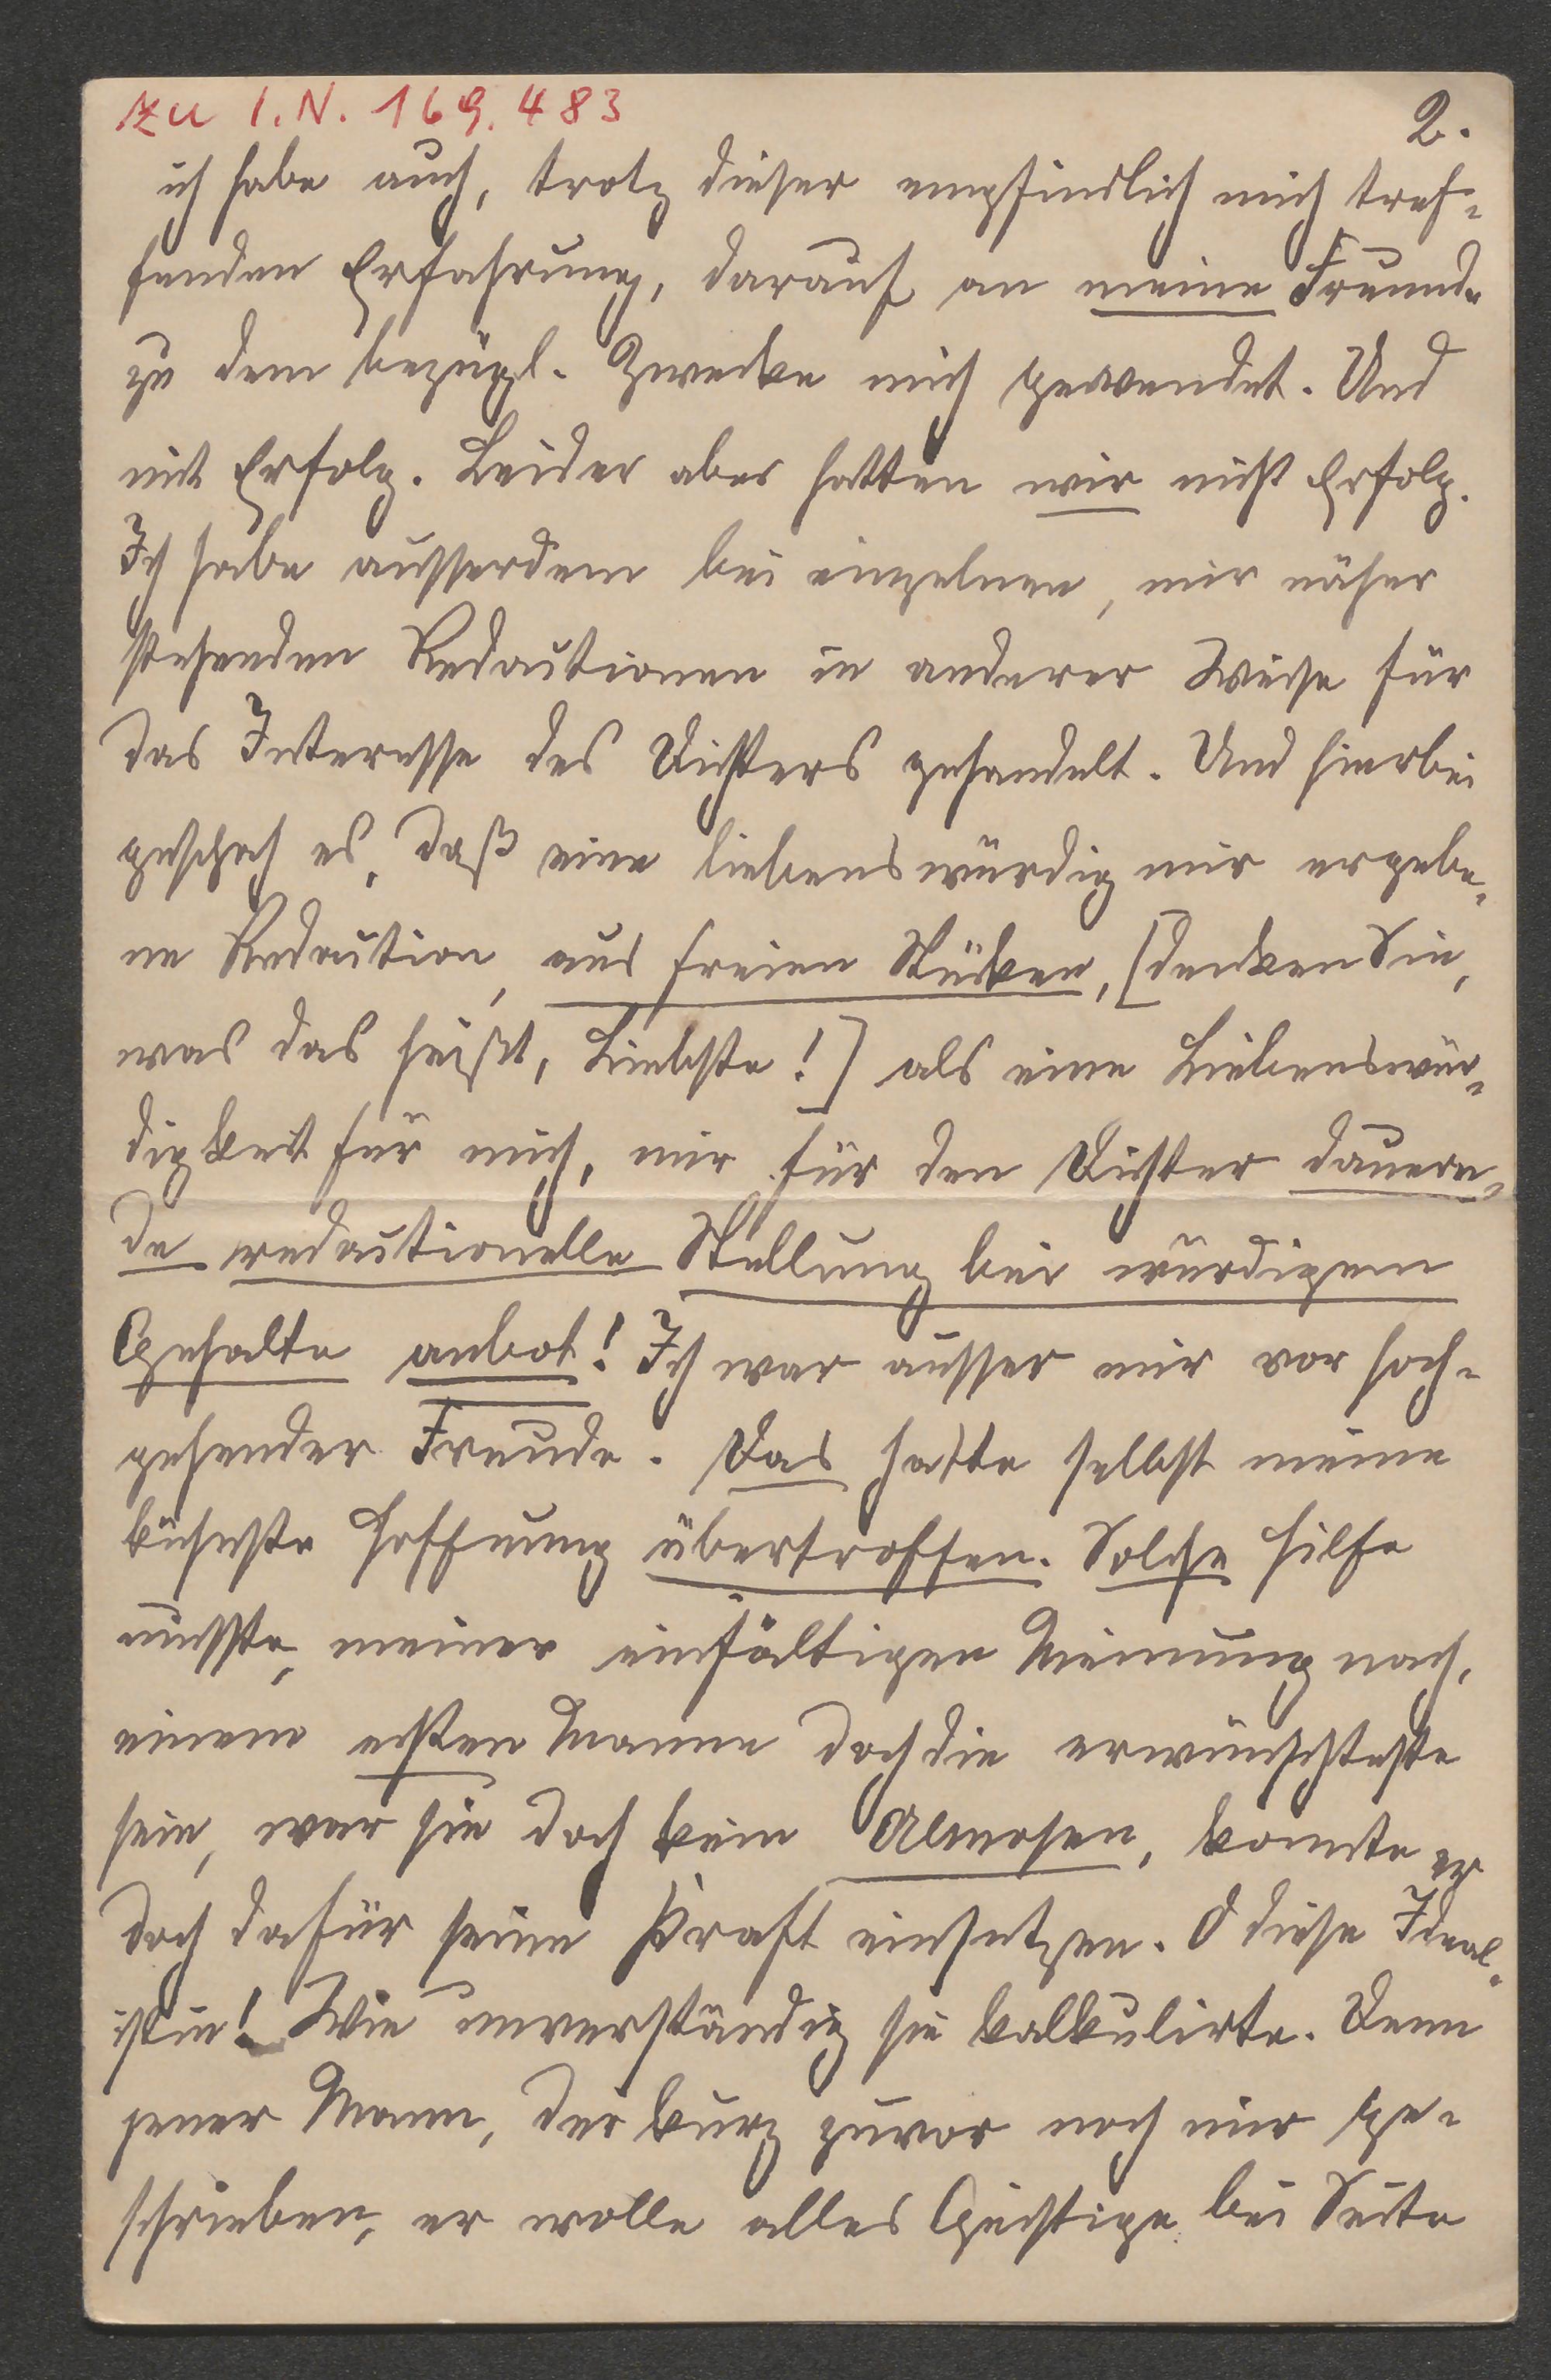 zu I.N. 169.483
2.
ich habe auch, trotz dieser empfindlich mich tref-
fenden Erfahrung, darauf an meine Freunde
zu dem bezügl. Zwecke mich gewendet. Und
mit Erfolg. Leider aber hatten wir nicht Erfolg.
Ich habe ausserdem bei einzelnen, mir näher
stehenden Redactionen in anderer Weise für
das Interesse des Dichters gehandelt. Und hierbei
geschah es, daß eine liebenswürdig mir ergebe-
ne Redaction, aus freien Stücken, [denken Sie,
was das heißt, Liebste!] als eine Liebenswür-
digkeit für mich, mir für den Dichter dauern-
de redactionelle Stellung bei würdigem
Gehalte anbot! Ich war ausser mir vor hoch-
gehender Freude. Das hatte selbst meine
kühnste Hoffnung übertroffen. Solche Hilfe
musste, meiner einfältigen Meinung nach,
einem ersten Manne doch die erwünschteste
sein, war sie doch kein Almosen, konnte er
doch dafür seine Kraft einsetzen. O diese Ideal-
istin! Wie unverständig sie kalkulirte. Denn
jener Mann, der kurz zuvor noch mir ge-
schrieben, er wolle alles Geistige bei Seite